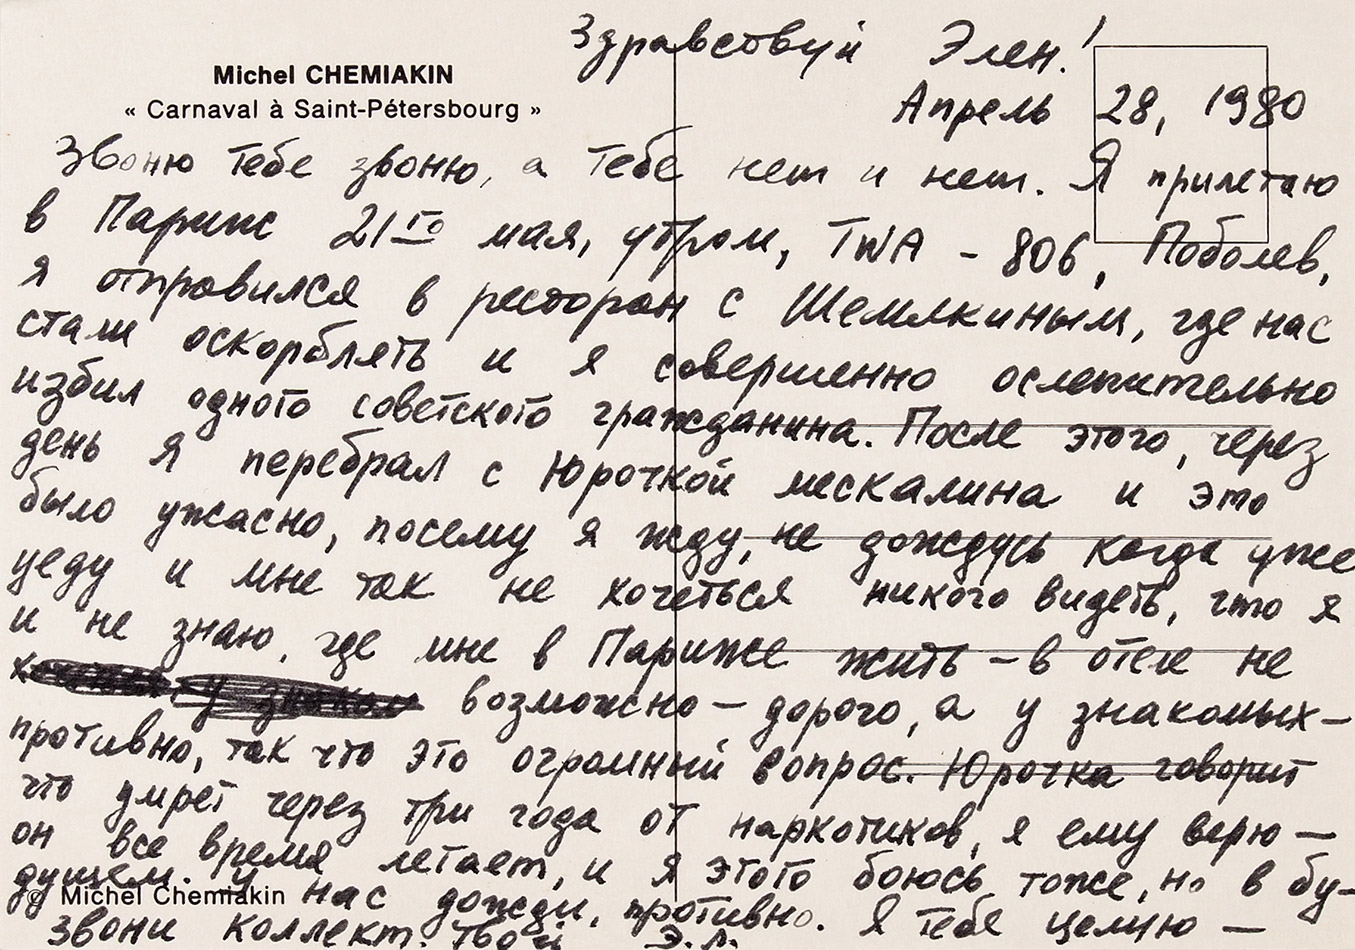 Здравствуй Элен!
Michel CHEMIAKIN
« Carnaval à Saint-Pétersbourg »
Апрель 28, 1980
Звоню тебе звоню, а тебе нет и нет. Я прилетаю
в Париж 21го мая, утром, TWA - 806, Поболев,
я отправился в ресторан с Шемякиным, где нас
стали оскорблять и я совершенно ослепительно
избил одного советского гражданина. После этого, через
день я перебрал с Юрочкой мескалина и это
было ужасно, посему я жду, не дождусь когда уже
уеду и мне так не хочеться никого видеть, что я
и не знаю, где мне в Париже жить – в отеле не
возможно – дорого, а у знакомых –
противно, так что это огромный вопрос. Юрочка говорит
что умрет через три года от наркотиков, я ему верю –
он все время летает, и я этого боюсь тоже, но в бу-
дущем. У нас дожди, противно. Я тебе целую –
© Michel Chemiakin
звони коллект. Твой Э. Л.